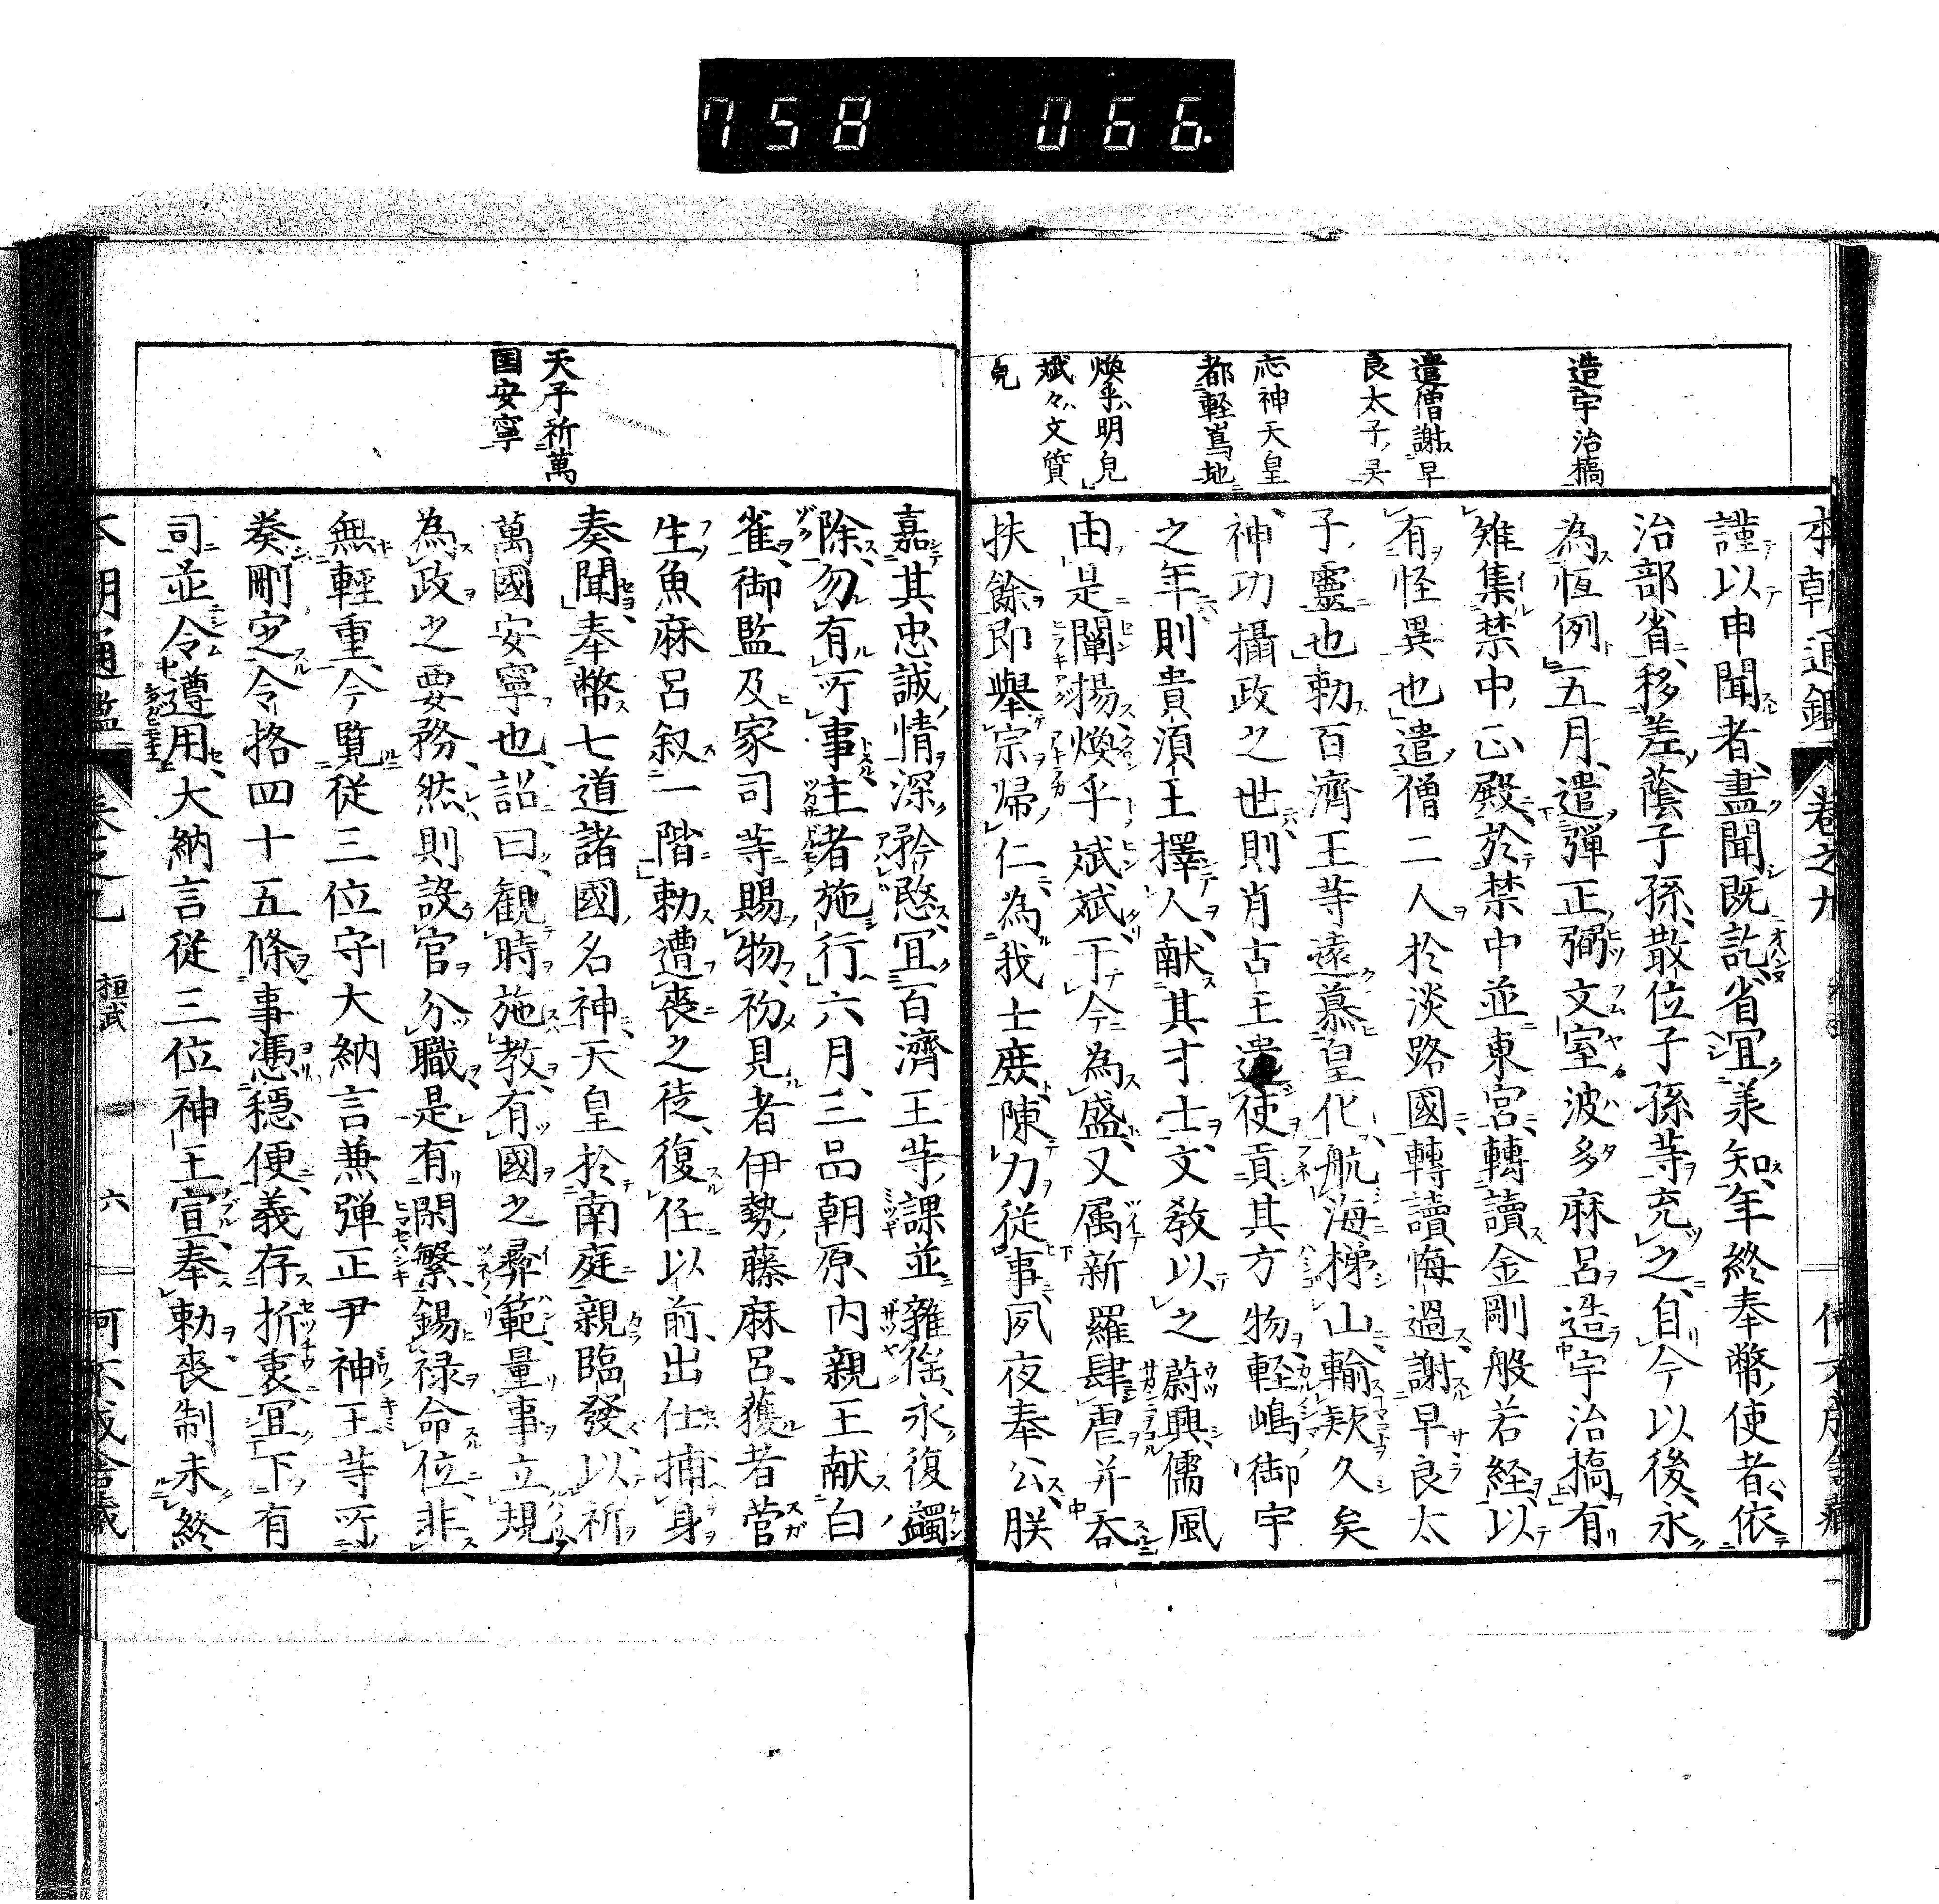 758 066.
本朝通鑑 巻之九
造宇治橋
遣僧謝早
良太子灵
応神天皇
都軽嶌地
煥乎明皃
斌々文質
皃
謹以申聞者盡聞既訖省宜羕知年終奉幣使者依
治部省移差蔭子孫散位子孫等充之自今以後永
為恒例五月遣弾正弼文室波多麻呂造宇治橋有
雉集禁中正殿於禁中並東宮轉讀金剛般若経以
有怪異也遣僧二人於淡路國轉讀悔過謝早良太
子靈也勅百濟王等遠慕皇化航海梯山輸欵久矣
神功攝政之世則肖古王遣使貢其方物軽嶋御宇
之年則貴須王擇人献其才士文教以之蔚興儒風
由是闡揚煥乎斌斌于今為盛又属新羅肆虐并呑
扶餘即舉宗帰仁為我士庶陳力従事夙夜奉公朕
天子祈萬
国安寧
嘉其忠誠情深矜愍宜百濟王等課並雜徭永復蠲
除勿有所事主者施行六月三品朝原内親王献白
雀御監及家司等賜物初見者伊勢藤麻呂獲者菅
生魚麻呂叙一階勅遭喪之徒復任以前出仕捕身
奏聞奉幣七道諸國名神天皇於南庭親臨發以祈
萬國安寧也詔曰観時施教有國之彛範量事立規
為政之要務然則設官分職是有閑繁錫禄命位非
無輕重今覧従三位守大納言兼弾正尹神王等所
奏刪定令格四十五條事憑穩便義存折衷宜下有
司並令遵用大納言従三位神王宣奉勅喪制未終
本朝通鑑 巻之九 桓武 六